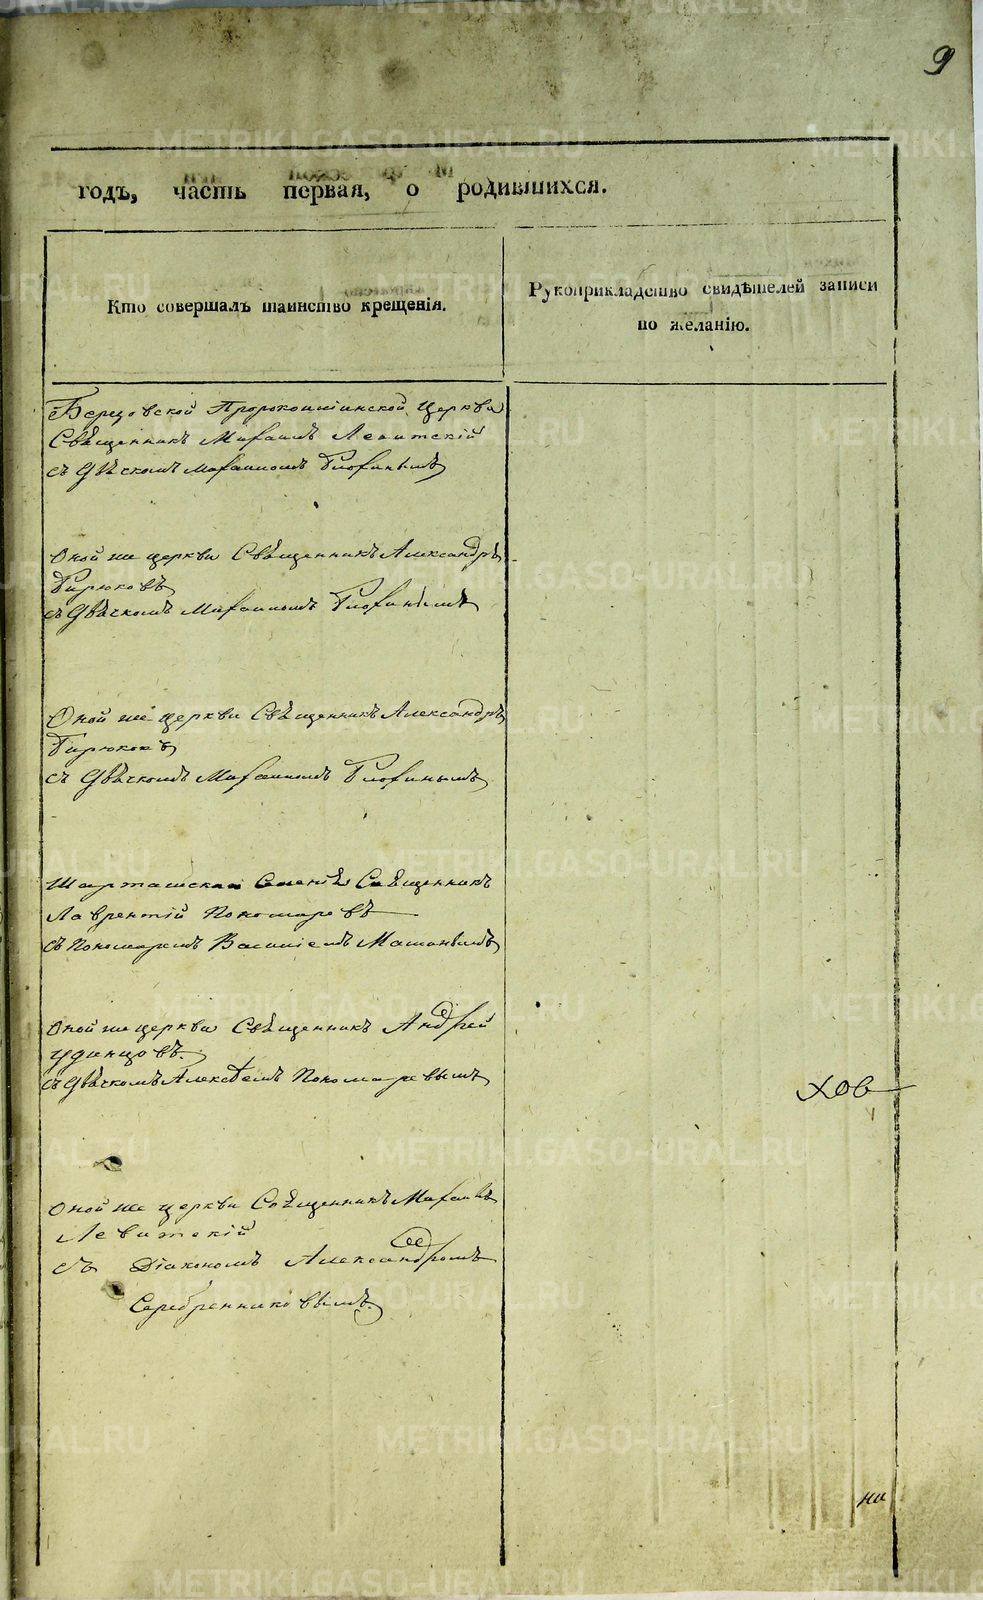 9
годъ, часть первая, о родившихся.
Кто совершалъ таинство крещенія.
Рукоприкладство свидѣтелей записи
по желанію.
Березовской Пророкоильинской Церкви
Священникъ Михаилъ Левитскій
съ Дьячкомъ Михаиломъ
Оной же церкви Священникъ Александръ
Бирюковъ
съ Дьячкомъ Михаиломъ
Оной же церкви Священникъ Александръ
Бирюковъ
съ Дьячкомъ Михаиломъ
Священникъ
Лаврентій Пономаревъ
съ Пономаремъ Василіемъ
Оной же церкви Священникъ Андрей
Удинцовъ
съ Дьячкомъ Алексѣемъ Пономаревымъ
хов
Оной же церкви Священникъ Михаилъ
Левитскій
съ Діакономъ Александромъ
Серебренниковымъ
ни
METRIKI.GASO-URAL.RU